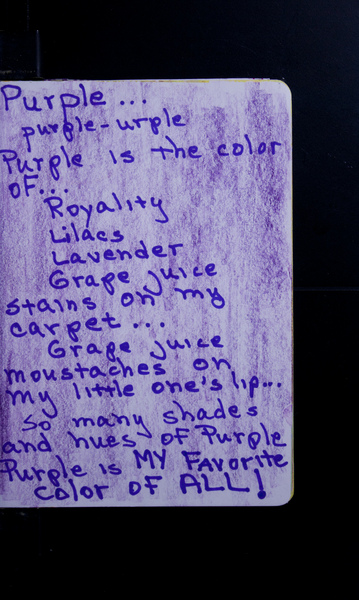 Purple...
purple-urple
Purple is the color
of...
Royality
Lilacs
Lavender
Grape juice
stains on my
carpet...
Grape juice
moustaches on
my little one's lip...
So many shades
and hues of Purple
Purple is MY FAVorite
color of ALL!